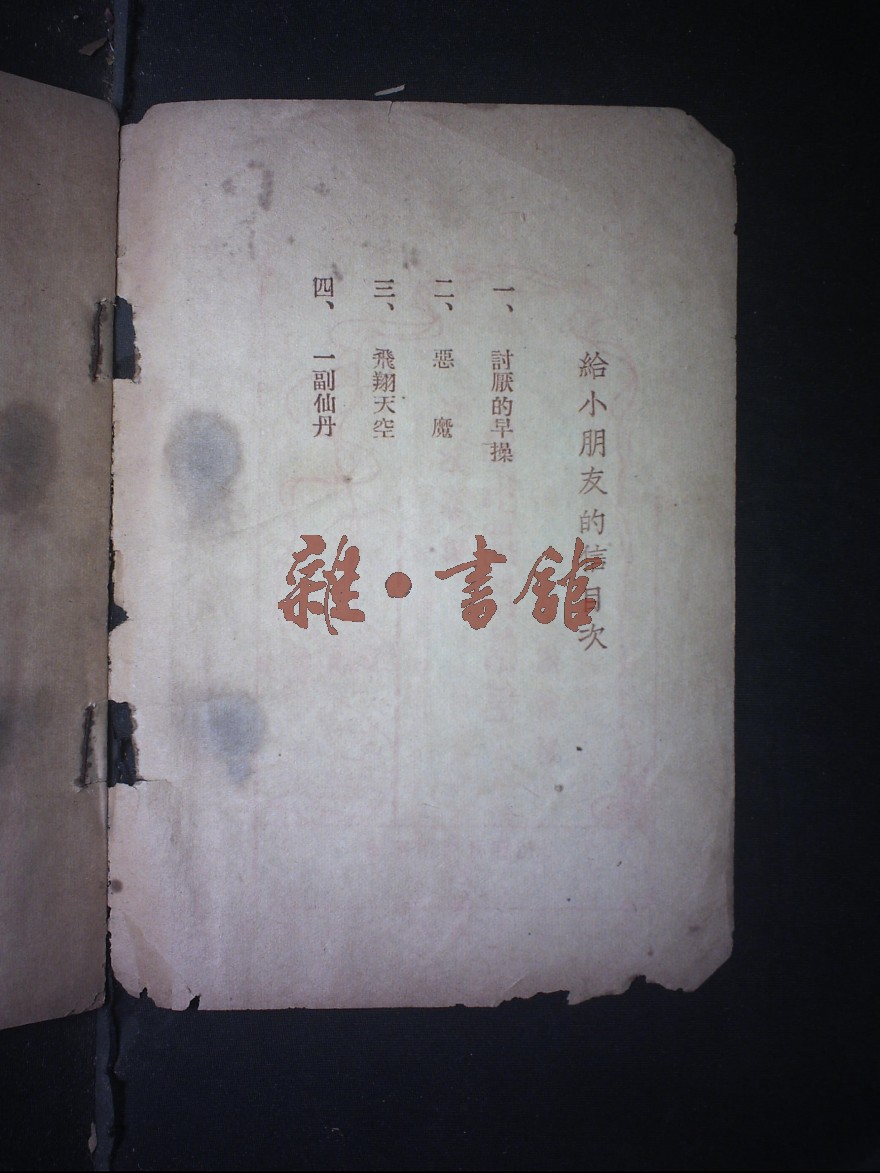 給小朋友的信目次
一、討厭的早操
二、惡魔
三、飛翔天空
四、一副仙丹
雜·書館